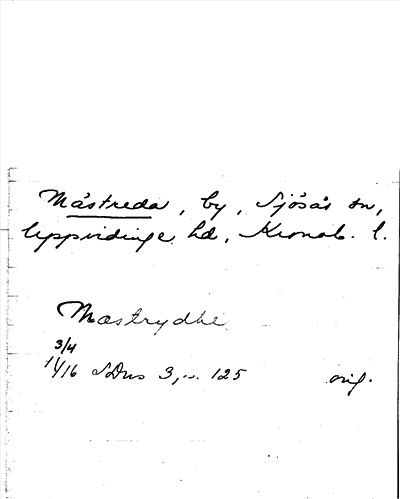 Måstreda, by, Sjösås sn,
Uppvidinge hd, Kronob. l.
Mastrydhe
3/4
1416 SDns 3, s. 125 orig.